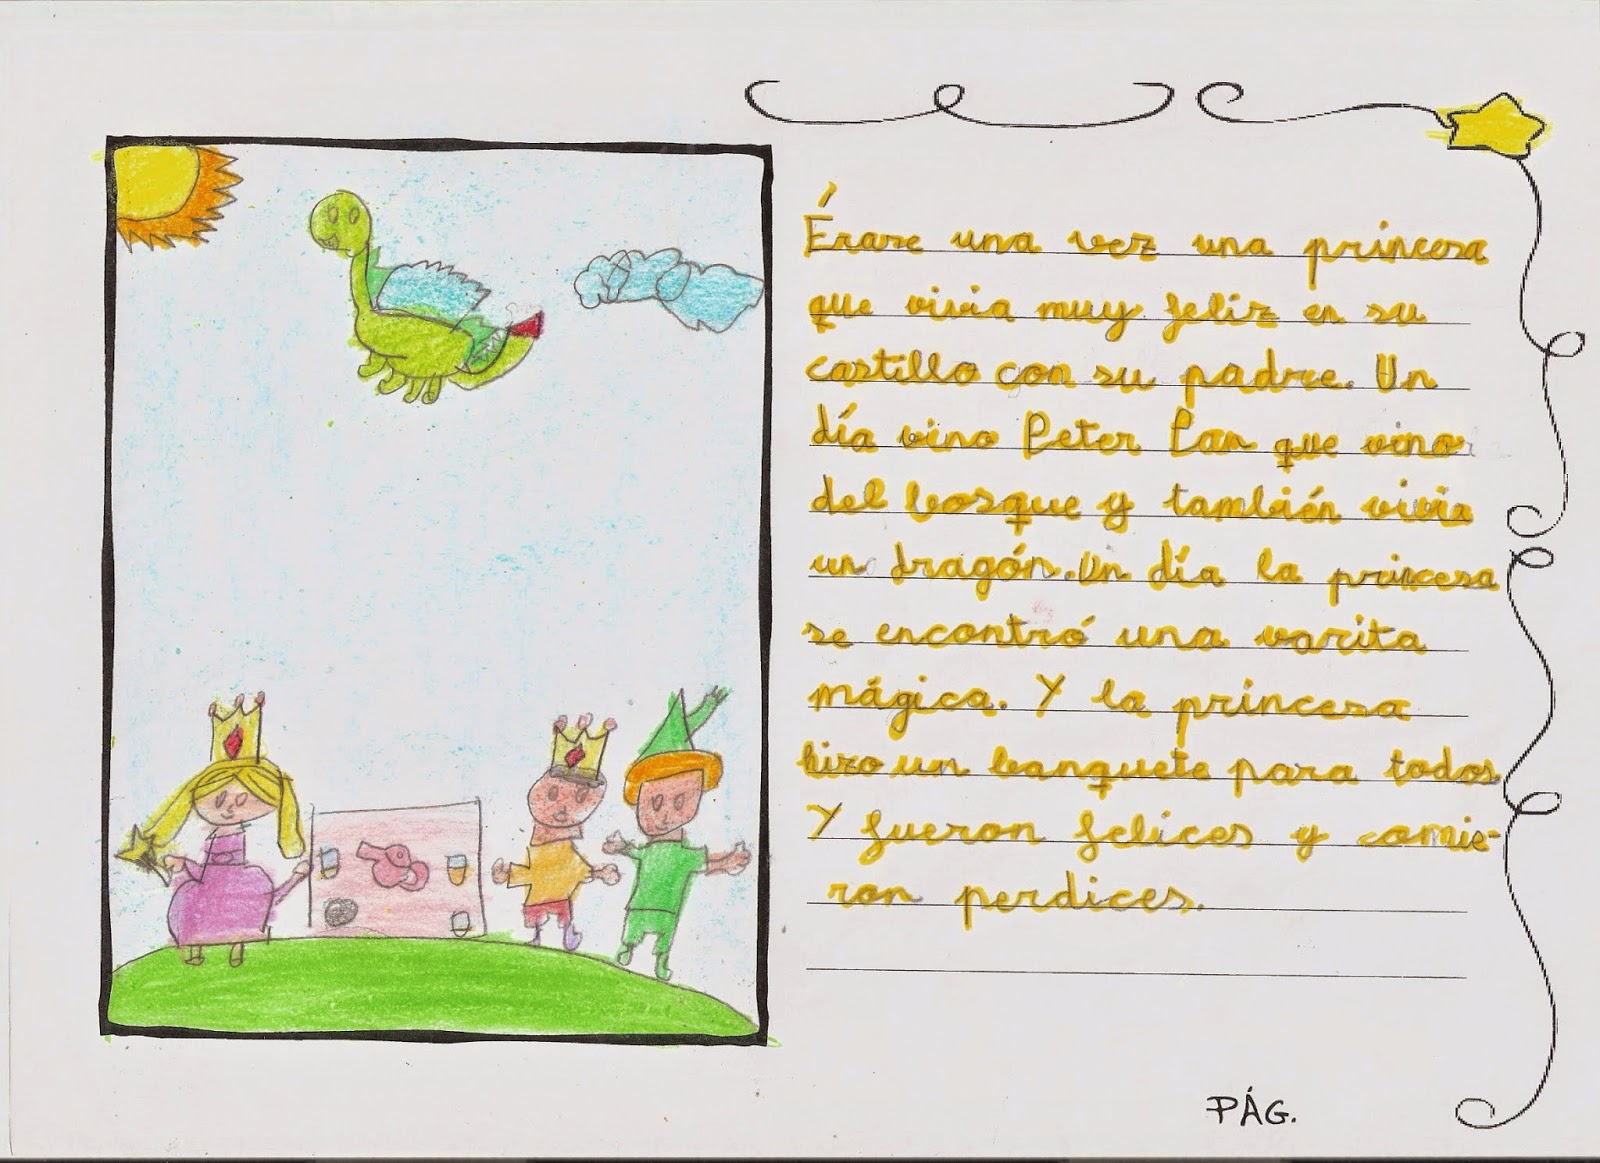 Érase una vez una princesa
que vivia muy feliz en su
castillo con su padre. Un
día vino Peter Pan que vino
del bosque y también vivia
un dragón. Un día la princesa
se encontró una varita
mágica. Y la princesa
hizo un banquete para todos
Y fueron felices y comie-
ron perdices.
PÁG.